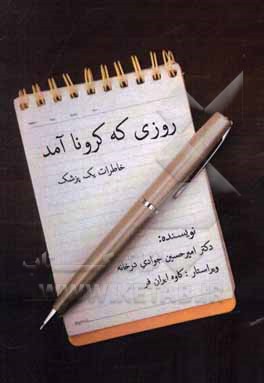 روزی که کرونا آمد
خاطرات یک پزشک
نویسنده:
دکتر امیرحسین جوادی درخانه
ویراستار: کاوه ایران فر